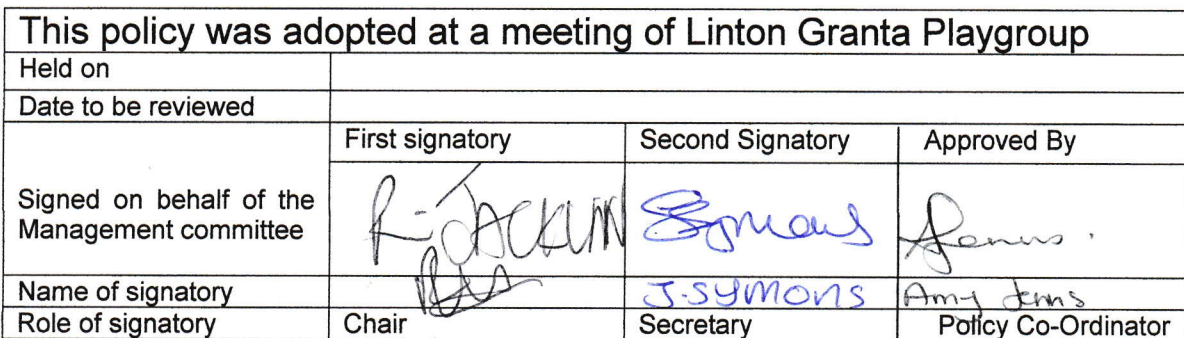 This policy was adopted at a meeting of Linton Granta Playgroup
Held on
Date to be reviewed
First signatory Second Signatory Approved By
Signed on behalf of the
Management committee
R. JACKLIN Symons
Name of signatory J. SYMONS Amy
Role of signatory Chair Secretary Policy Co-Ordinator